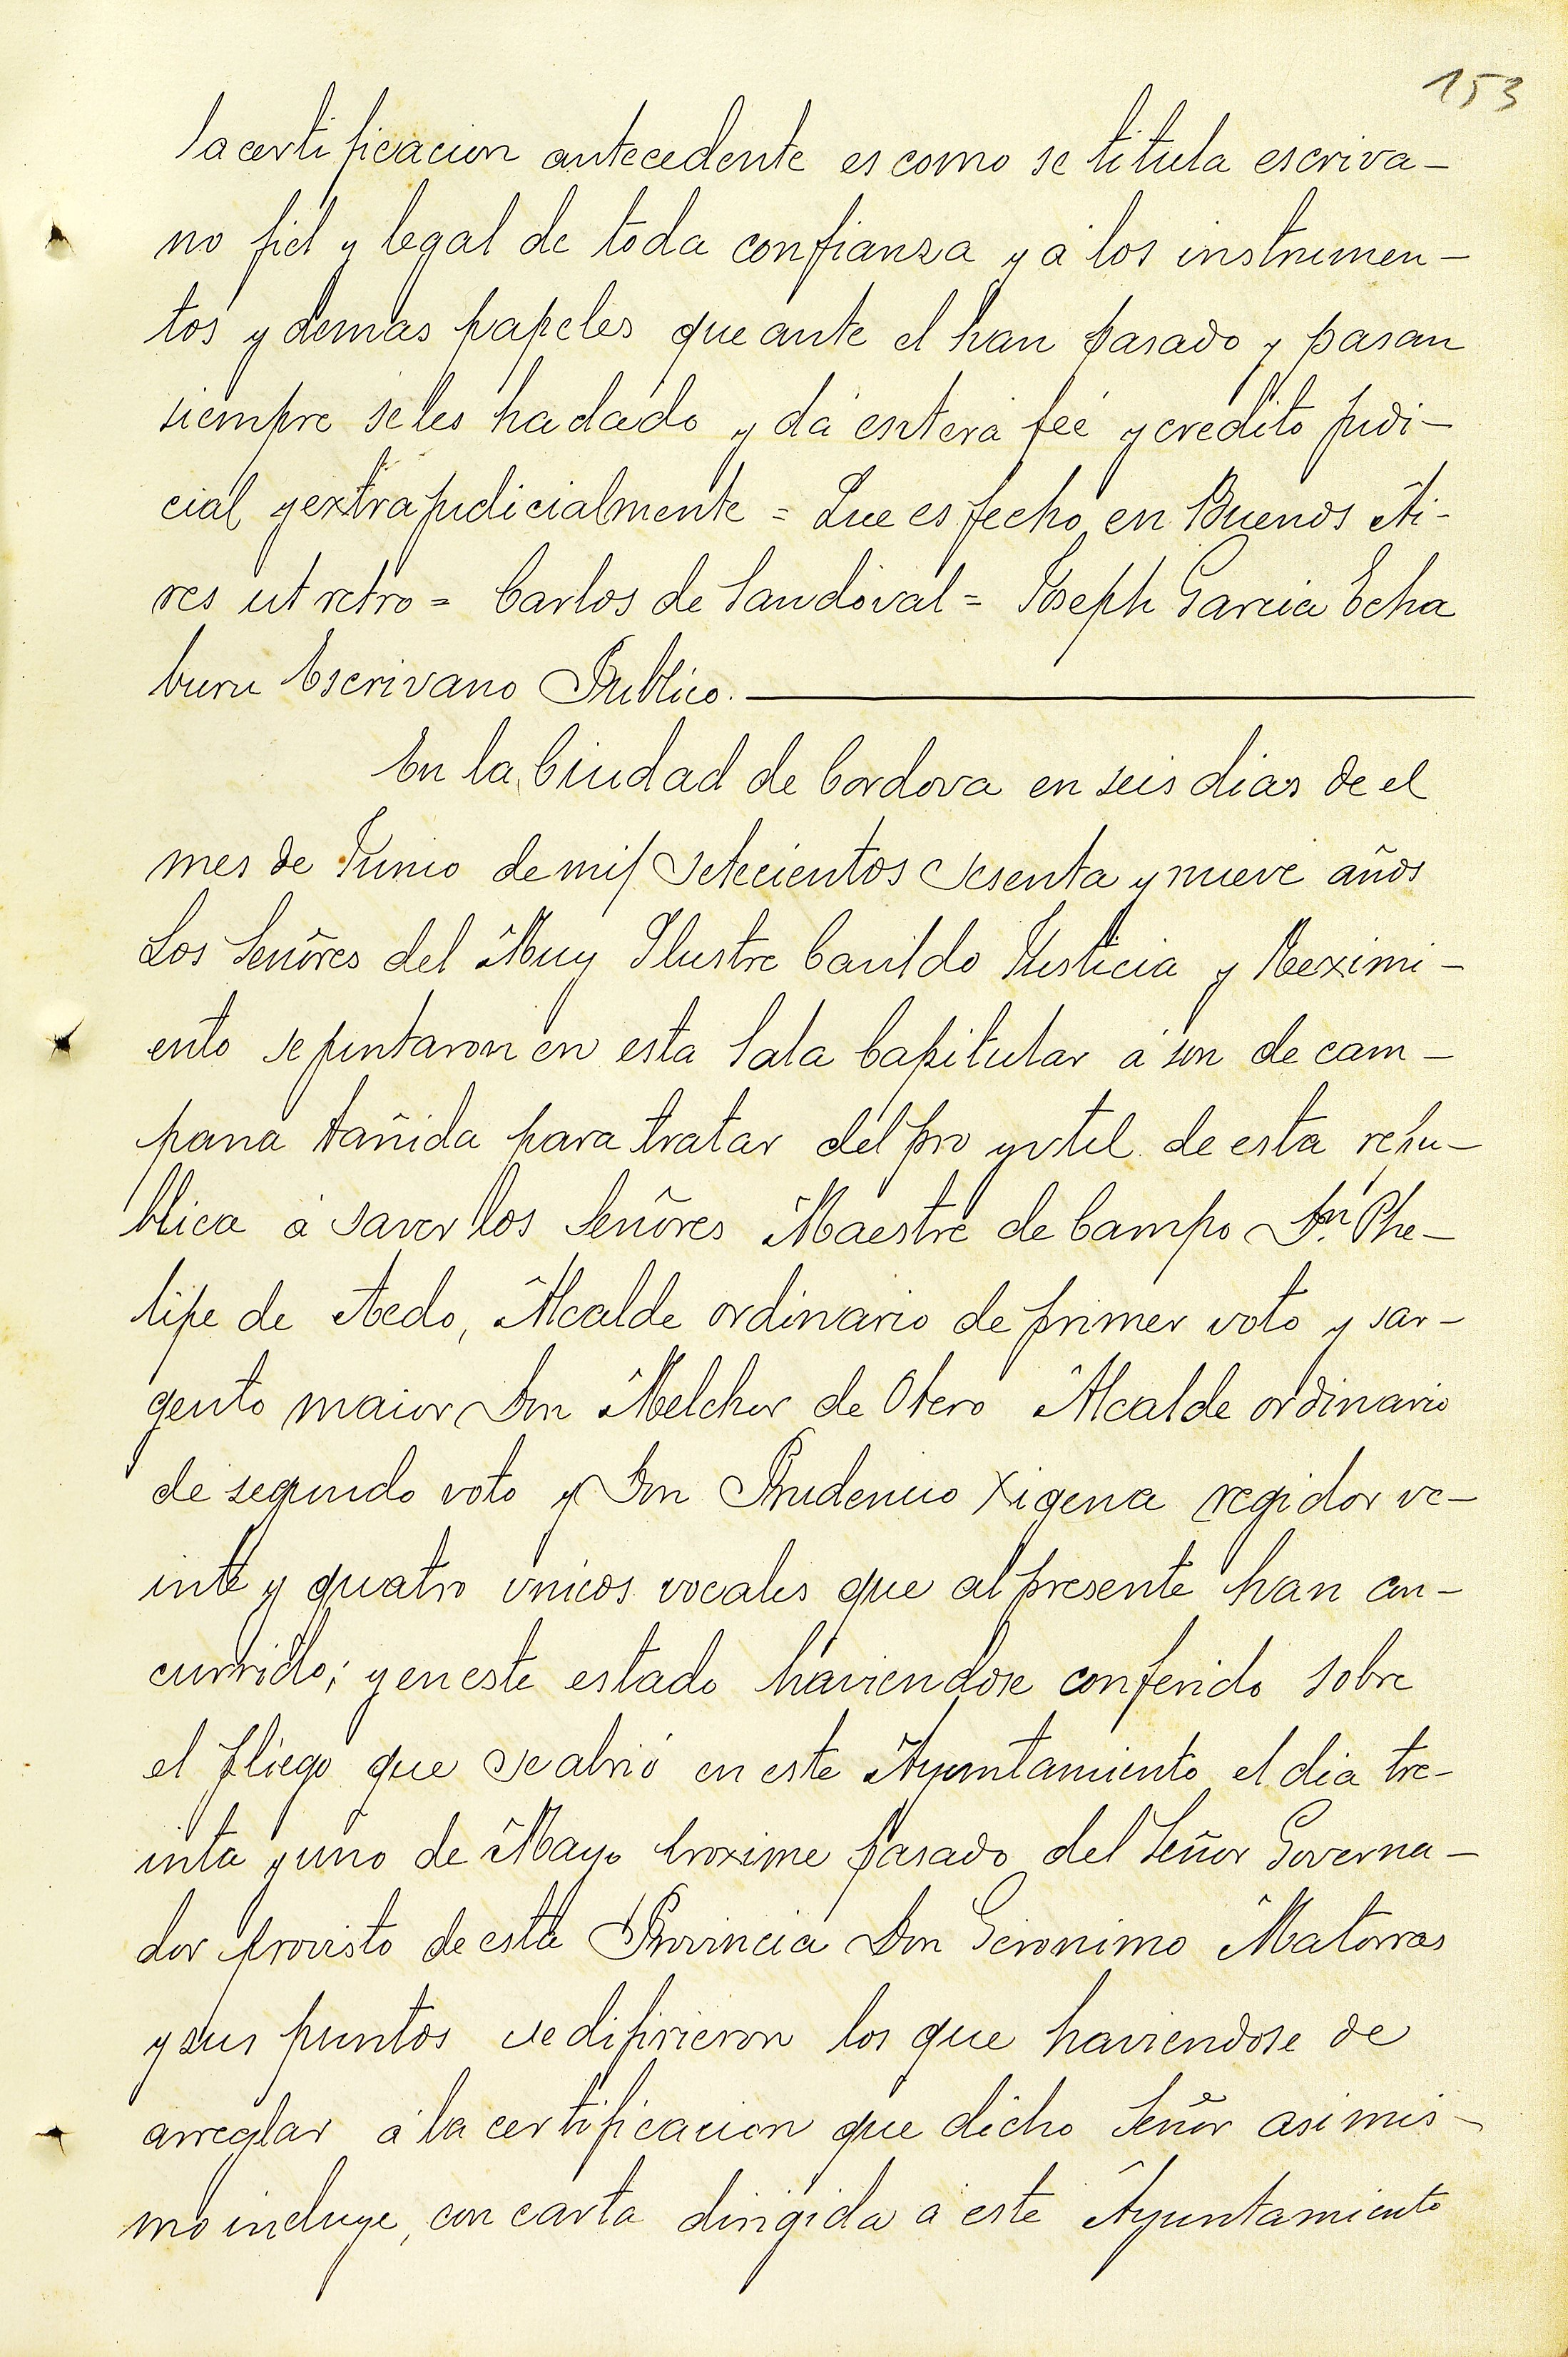 153
la certificacion antecedente es como se titula escriva-
no fiel y legal de toda confianza y á los instrumen-
tos y demas papeles que ante el han pasado y pasan
siempre se les ha dado y dá entera feé y credito judi-
cial y extrajudicialmente = Que es fecho en Buenos Ai-
res ut retro = Carlos de Sandoval = Joseph Garcia Echa
buru Escrivano Publico.
En la Ciudad de Cordova en seis dias de el
mes de Junio de mil setecientos sesenta y nueve años
Los Señores del Muy Ilustre Cavildo Justicia y Reximi-
ento se juntaron en esta Sala Capitular á son de cam-
pana tañida para tratar del pro y vtil de esta repu-
blica á saver los Señores Maestre de Campo Dn. Phe-
lipe de Aedo, Alcalde ordinario de primer voto y sar-
gento maior Don Melchor de Otero Alcalde ordinario
de segundo voto y Don Prudencio Xigena regidor ve-
inte y quatro vnicos vocales que al presente han con-
currido; y en este estado haviendose conferido sobre
el pliego que se abrió en este Ayuntamiento el dia tre-
inta y uno de Mayo proxime pasado del Señor Governa-
dor provisto de esta Provincia Don Geronimo Matorras
y sus puntos se difirieron los que haviendose de
arreglar á la certificacion que dicho Señor asimis-
mo incluye, con carta dirigida á este Ayuntamiento